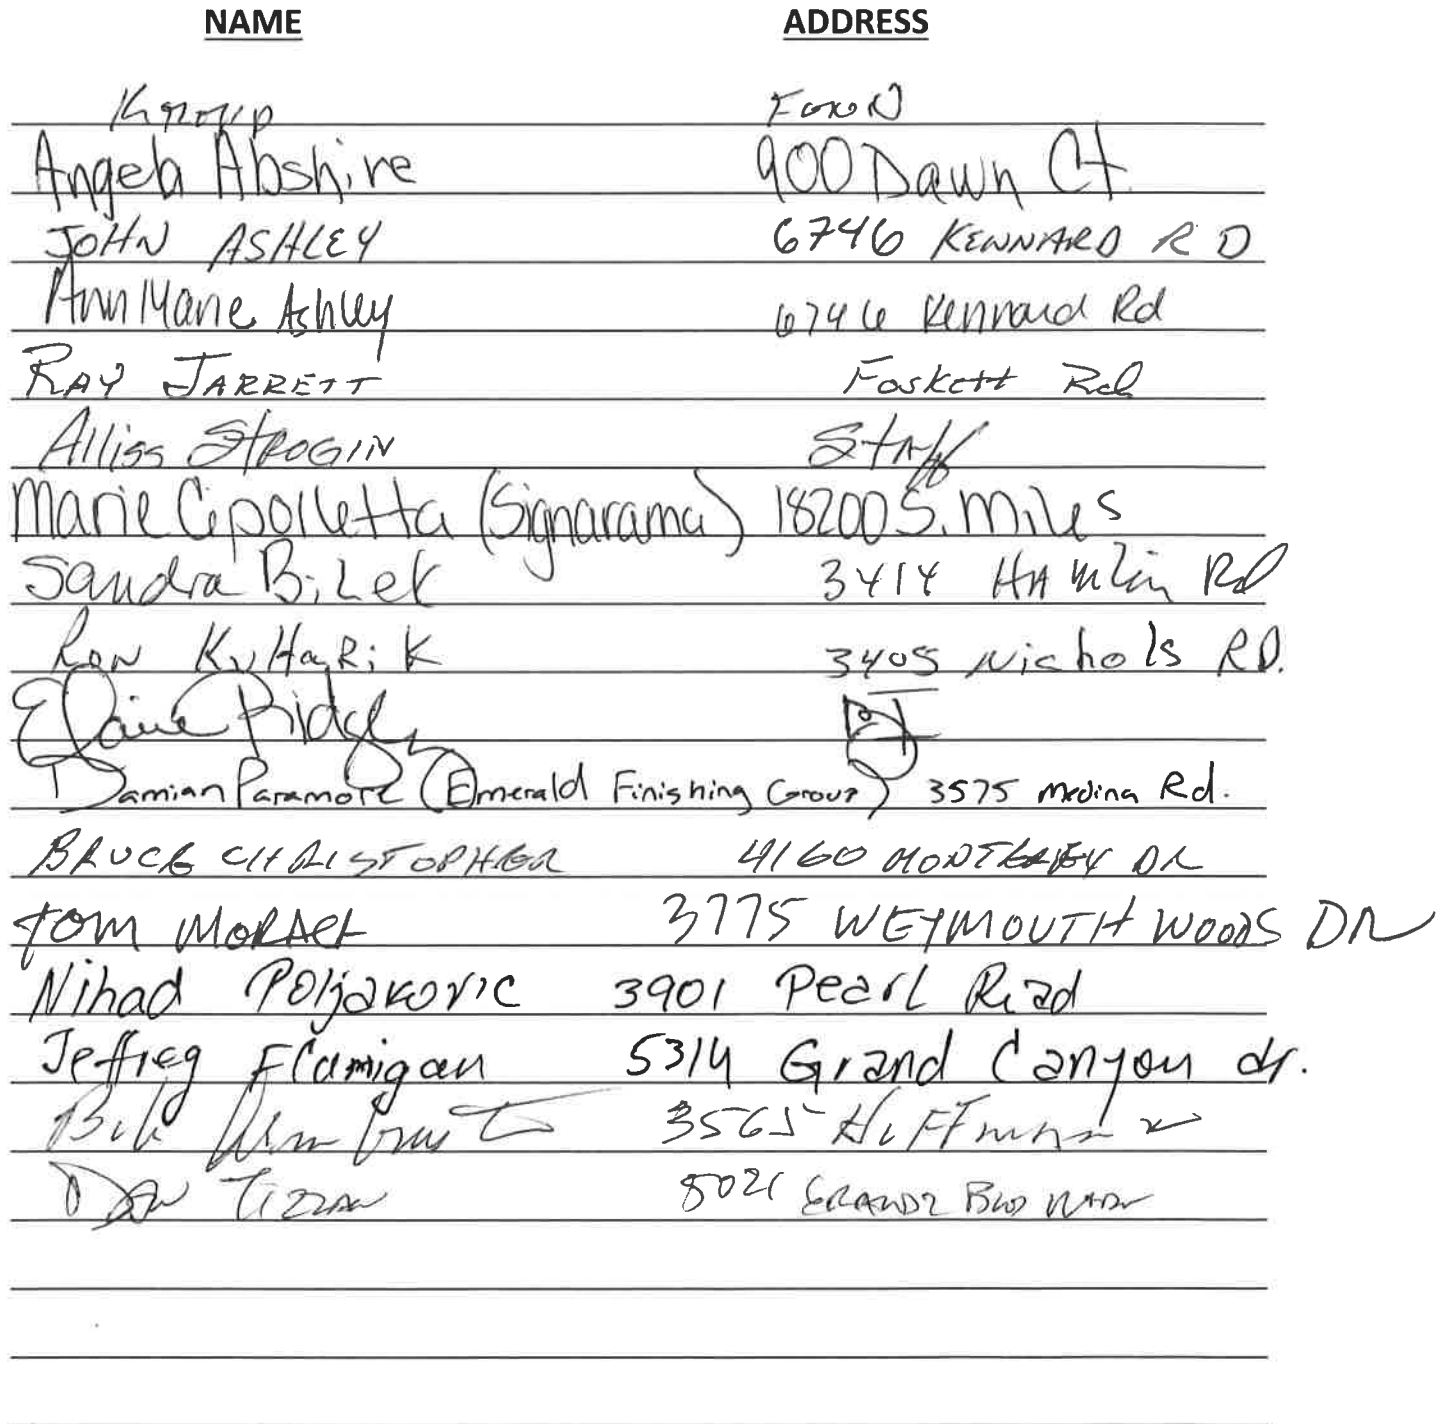 NAME ADDRESS
Angela Abshire 900 Dawn Ct.
JOHN ASHLEY 6746 KENNARD RD
Ann Marie Ashley 6746 Kennard Rd
RAY JARRETT Foskett Rd
Alliss STROGIN Staff
Marie Cipolletta (Signarama) 18200 S. Miles
Sandra Bilek 3414 HAMlin Rd
Ron KuHaRiK 3405 Nichols RD.
Elaine Ridgley
Damian Paramore (Emerald Finishing Group) 3575 Medina Rd.
BRUCE CHRISTOPHER 4160 MONTEREY DR
TOM 3775 WEYMOUTH WOODS DR
Nihad Poljakovic 3901 Pearl Road
Jeffrey Flamigan 5314 Grand Canyon dr.
Bill 3565 Huffman
Dan 5021